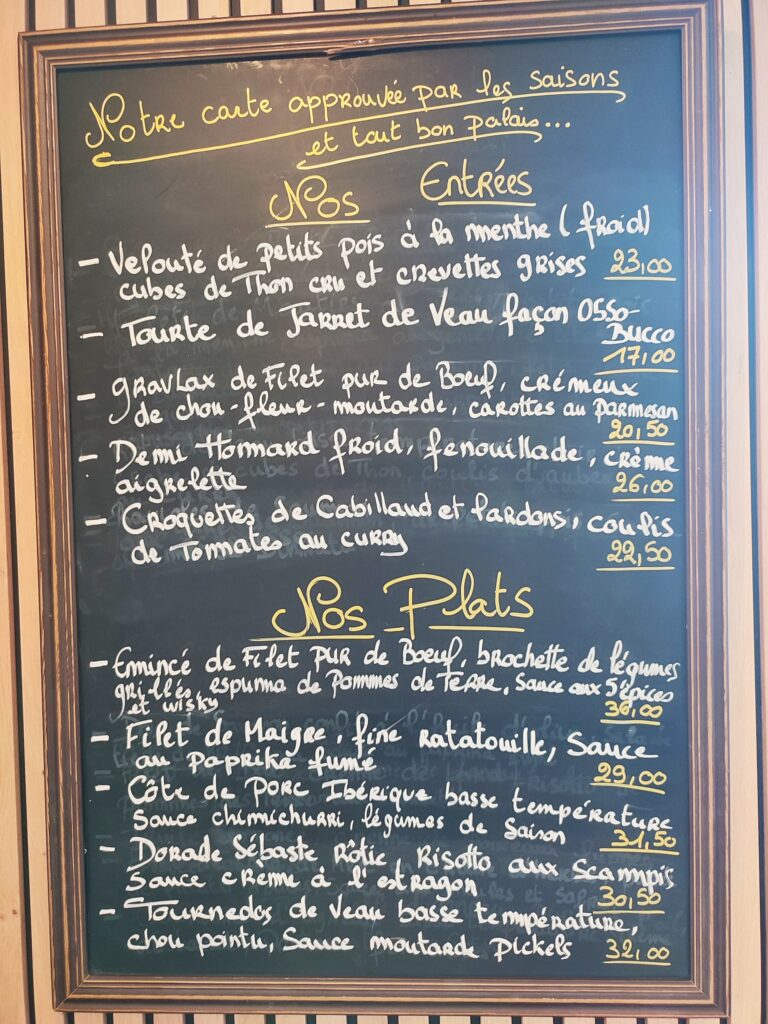 Notre carte approuvée par les saisons
et tout bon palais...
Nos Entrées
- Velouté de petits pois à la menthe (froid)
cubes de Thon cru et crevettes grises 23,00
- Tourte de Jarret de Veau façon Osso-
Bucco
17,00
- gravlax de Filet pur de Boeuf, crémeux
de chou-fleur-moutarde, carottes au parmesan
20,50
- Demi Hommard froid, fenouillade, crème
aigrelette 26,00
- Croquettes de Cabillaud et lardons, coulis
de Tommates au curry 22,50
Nos Plats
- Emincé de Filet pur de Boeuf, brochette de légumes
grillés, espuma de Pommes de Terre, Sauce aux 5 épices
et wisky 36,00
- Filet de Maigre, fine ratatouille, Sauce
au paprika fumé 29,00
- Côte de Porc Ibérique basse température
Sauce chimichurri, légumes de Saison 31,50
- Dorade Sébaste Rôtie, Risotto aux Scampis
Sauce crème à l'estragon 30,50
- Tournedos de Veau basse température,
chou pointu, Sauce moutarde pickels 32,00